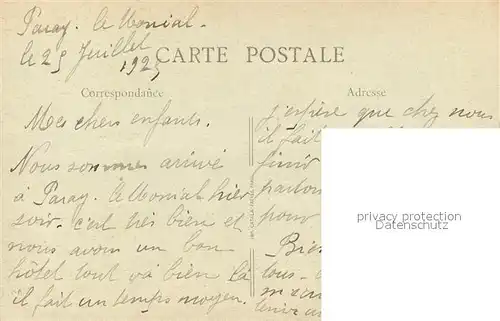 Paray. le Monial.
le 25 Juillet
1925
CARTE POSTALE
Correspondance
Adresse
Mes chers enfants.
Nous sommes arrivé
à Paray. le Monial hier
soir. c'est très bien et
nous avon un bon
hôtel tout va bien là
il fait un temps moyen.
j'espère que chez nous
il fait
finir
partons
pour
Bien
tous
privacy protection
Datenschutz